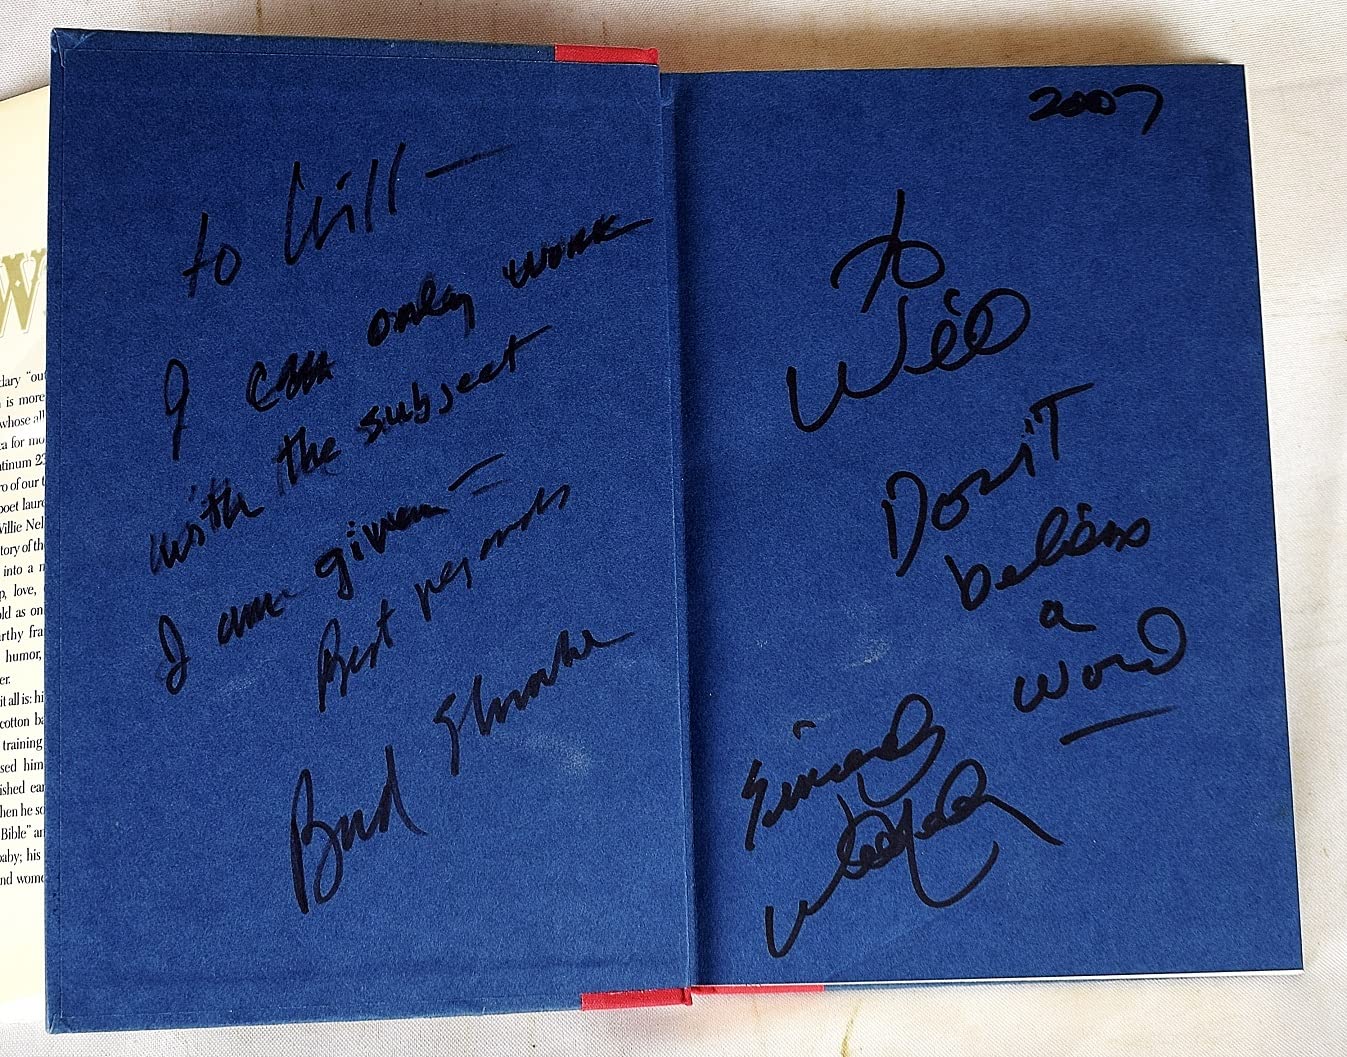 W
dary "out
is more
whose all
ra for mo
tinum 23
o of our t
poet laure
Willie Nel
tory of th
into a m
p, love,
old as on
rthy fra
humor,
er.
it all is: hi
cotton ba
training
sed him
ished ear
hen he so
Bible" an
baby; his
nd wome
to Will —
I can only work
with the subject
I am given —
Best regards
Bud Shrake
2007
to
Will
Don't
believe
a
word
Sincerely
Willie Nelson